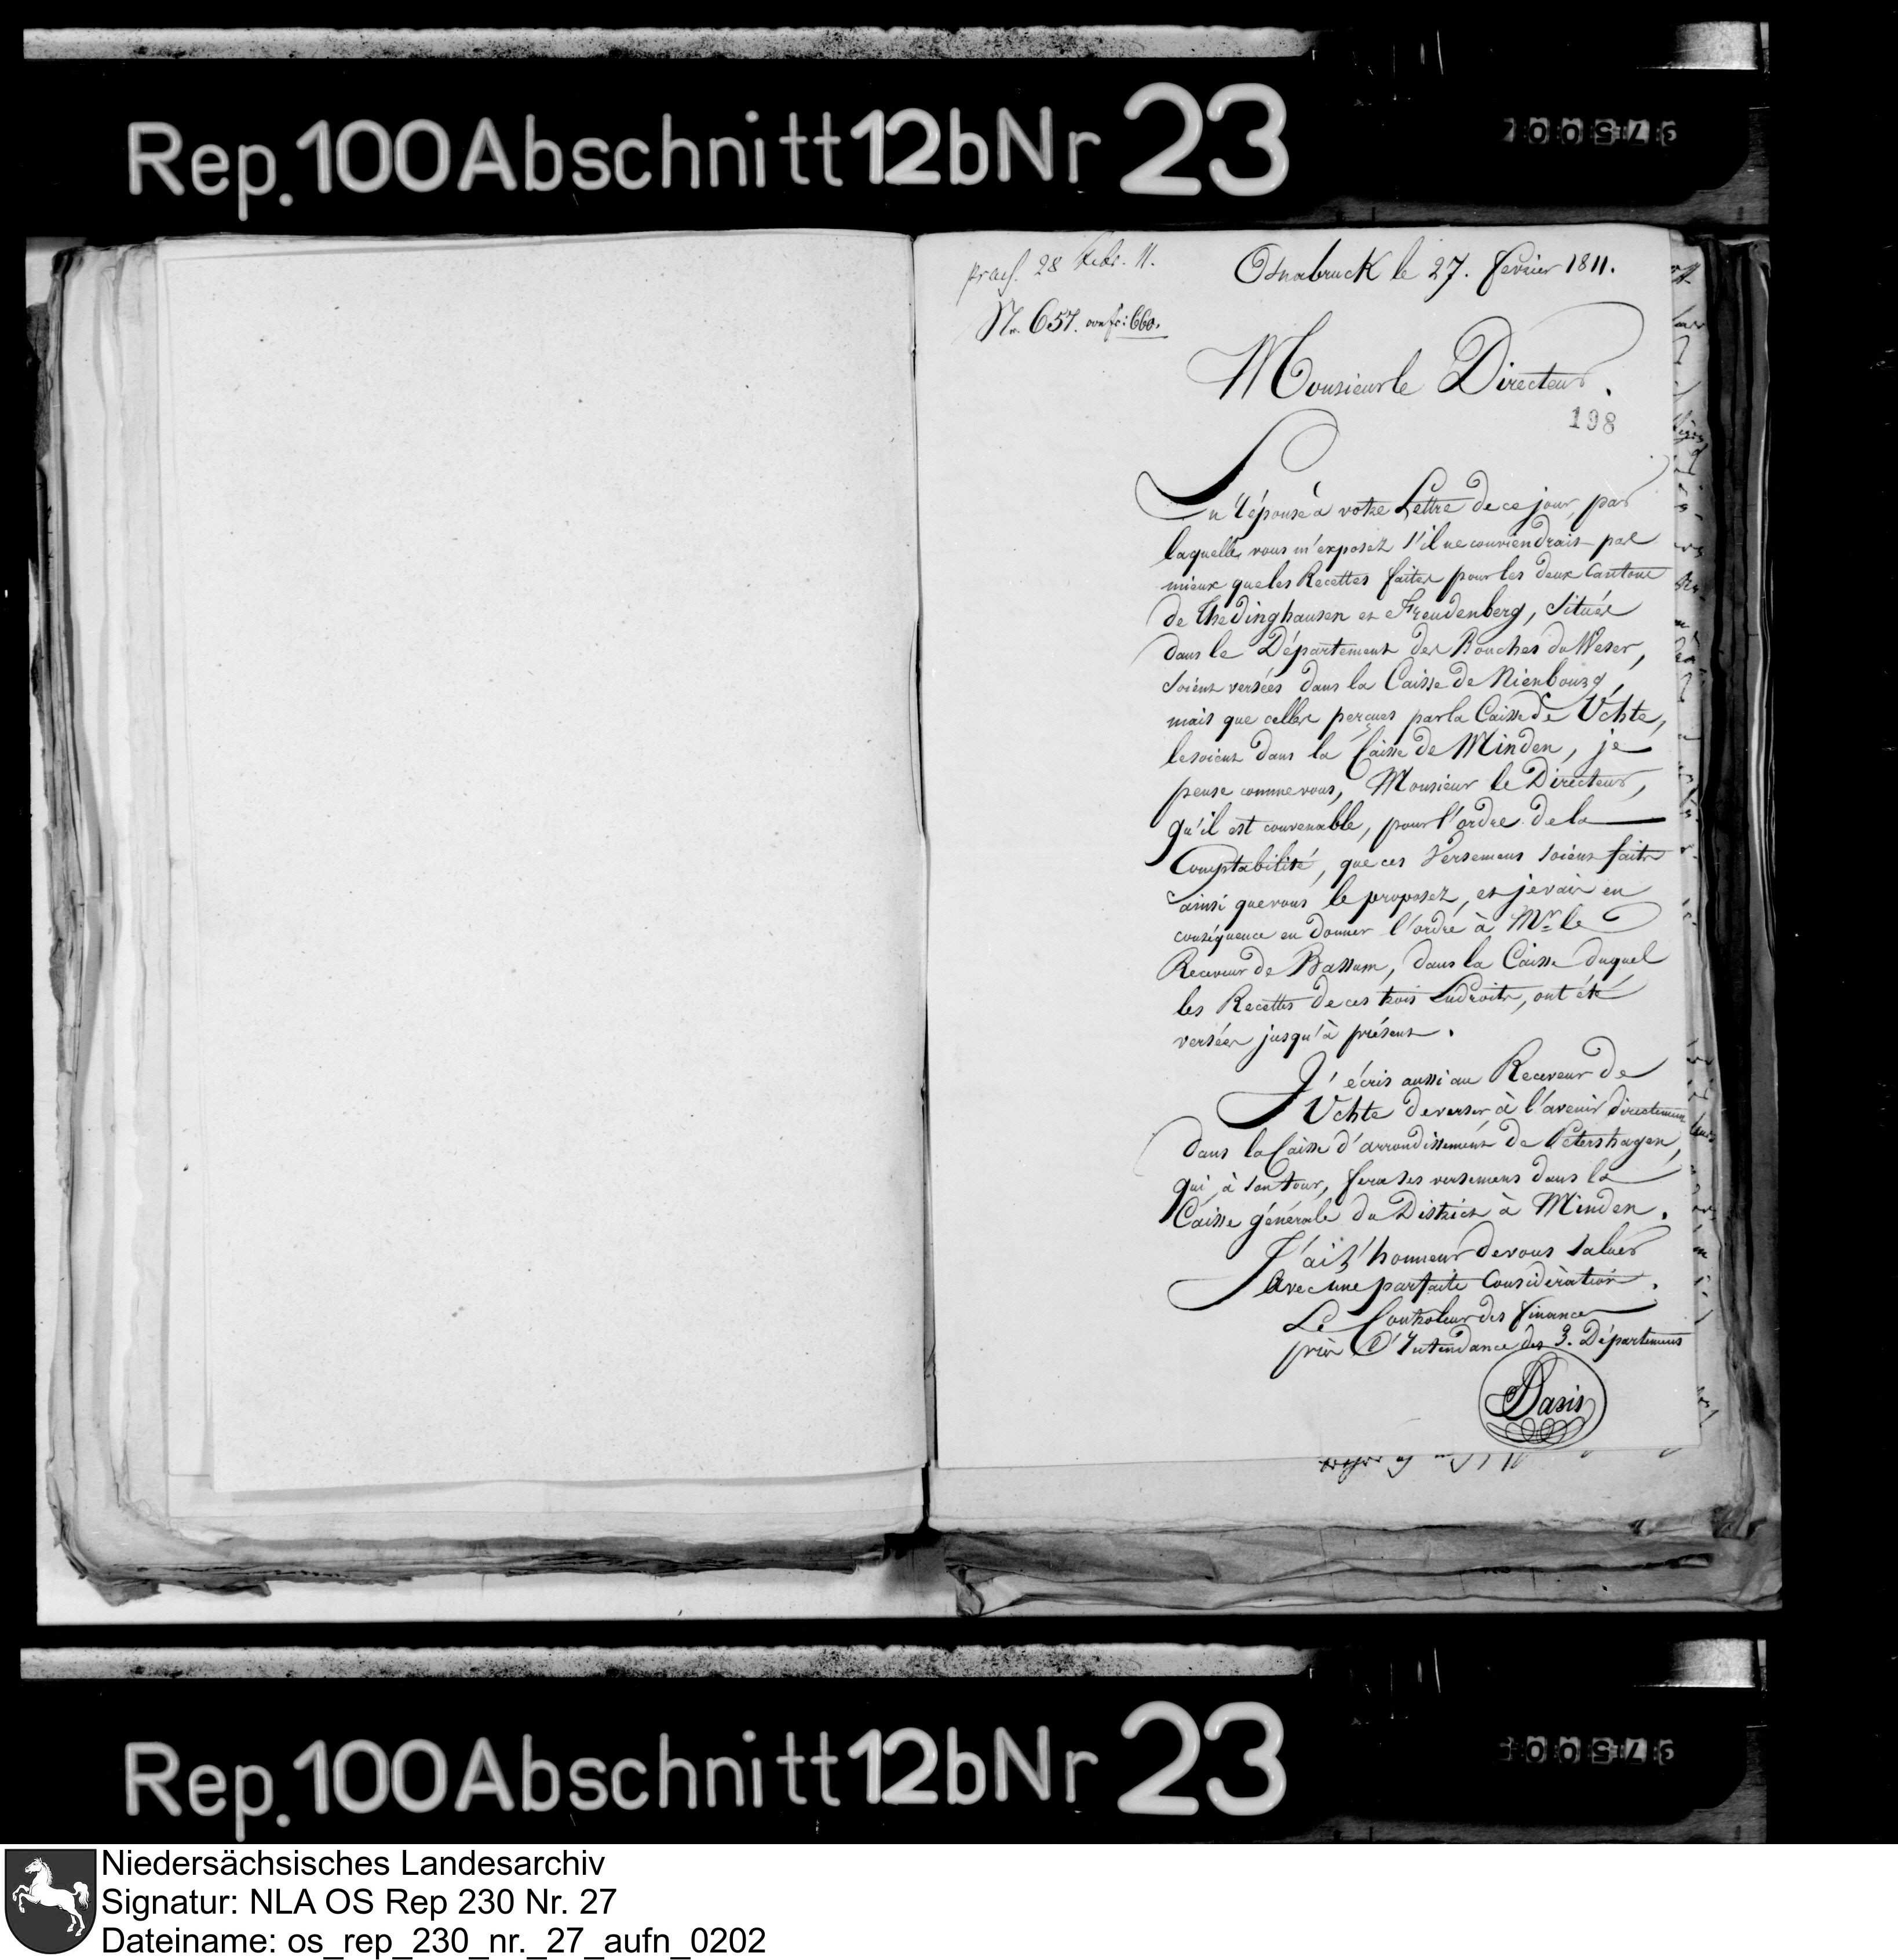 Rep. 100 Abschnitt 12b Nr 23
praes. 28 Febr. 11.
Osnabruck le 27. fevrier 1811.
Nr. 657. conf: 660.
Monsieur le Directeur.
198
En réponse à votre Lettre de ce jour, par
laquelle vous m'exposez s'il ne conviendrait pas
mieux que les Recettes faites pour les deux Cantons
de Thedinghausen et Freudenberg, situés
dans le Département des Bouches du Weser,
soient versées dans la Caisse de Nienbourg,
mais que celles perçues par la Caisse de Uchte,
le soient dans la Caisse de Minden, je
pense comme vous, Monsieur le Directeur,
qu'il est convenable, pour l'ordre de la
Comptabilité, que ces Versemens soient faits
ainsi que vous le proposez, et je vais en
conséquence en donner l'ordre à Mr. le
Receveur de Bassum, dans la Caisse duquel
les Recettes de ces trois Endroits, ont été
versées jusqu'à présent.
J'écris aussi au Receveur de
Uchte de verser à l'avenir directement
dans la Caisse d'arrondissement de Petershagen,
qui, à son tour, fera ses versemens dans la
Caisse générale du District à Minden.
J'ai l'honneur de vous saluer
avec une parfaite Considération.
Le Controleur des Finances
près l'Intendance des 3. Départemens
Dasis
Rep. 100 Abschnitt 12b Nr 23
Niedersächsisches Landesarchiv
Signatur: NLA OS Rep 230 Nr. 27
Dateiname: os_rep_230_nr._27_aufn_0202